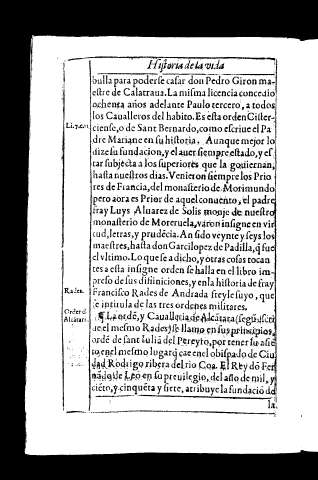 Historia de la vida
bulla para poderse casar don Pedro Giron ma-
estre de Calatraua. La misma licencia concedio
ochenta años adelante Paulo tercero, a todos
los Caualleros del habito. Es esta orden Cister-
ciense, o de Sant Bernardo, como escriue el Pa
dre Mariane en su historia. Aunque mejor lo
dize su fundacion, y el auer siempre estado, y es
tar subjecta a los superiores que la gouiernan,
hasta nuestros dias. Venieron siempre los Prio
res de Francia, del monasterio de Morimundo
pero aora es Prior de aquel conuento, el padre
fray Luys Aluarez de Solis monje de nuestro
monasterio de Moreruela, varon insigne en vir
tud, letras, y prudēcia. An sido veynte y seys los
maestres, hasta don Garcilopez de Padilla, q̄ fue
el vltimo. Lo que se a dicho, y otras cosas tocan
tes a esta insigne orden se halla en el libro im-
preso de sus difiniciones, y en la historia de fray
Rades.
Francisco Rades de Andrada freyle suyo, que
se intitula de las tres ordenes militares.
Order d
Alcātara
¶ La ordē, y Caualleria de Alcātara (segū escri
ue el mesmo Rades) se llamo en sus principios,
ordē de sant Iuliā del Pereyro, por tener su asiē
to, en el mesmo lugar q̄ cae en el obispado de Ciu
dad Rodrigo ribera del rio Coa. El Rey dō Fer
nādo de Leō en su preuilegio, del año de mil, y
ciēto, y cinquēta y siete, atribuye la fundaciō de
la